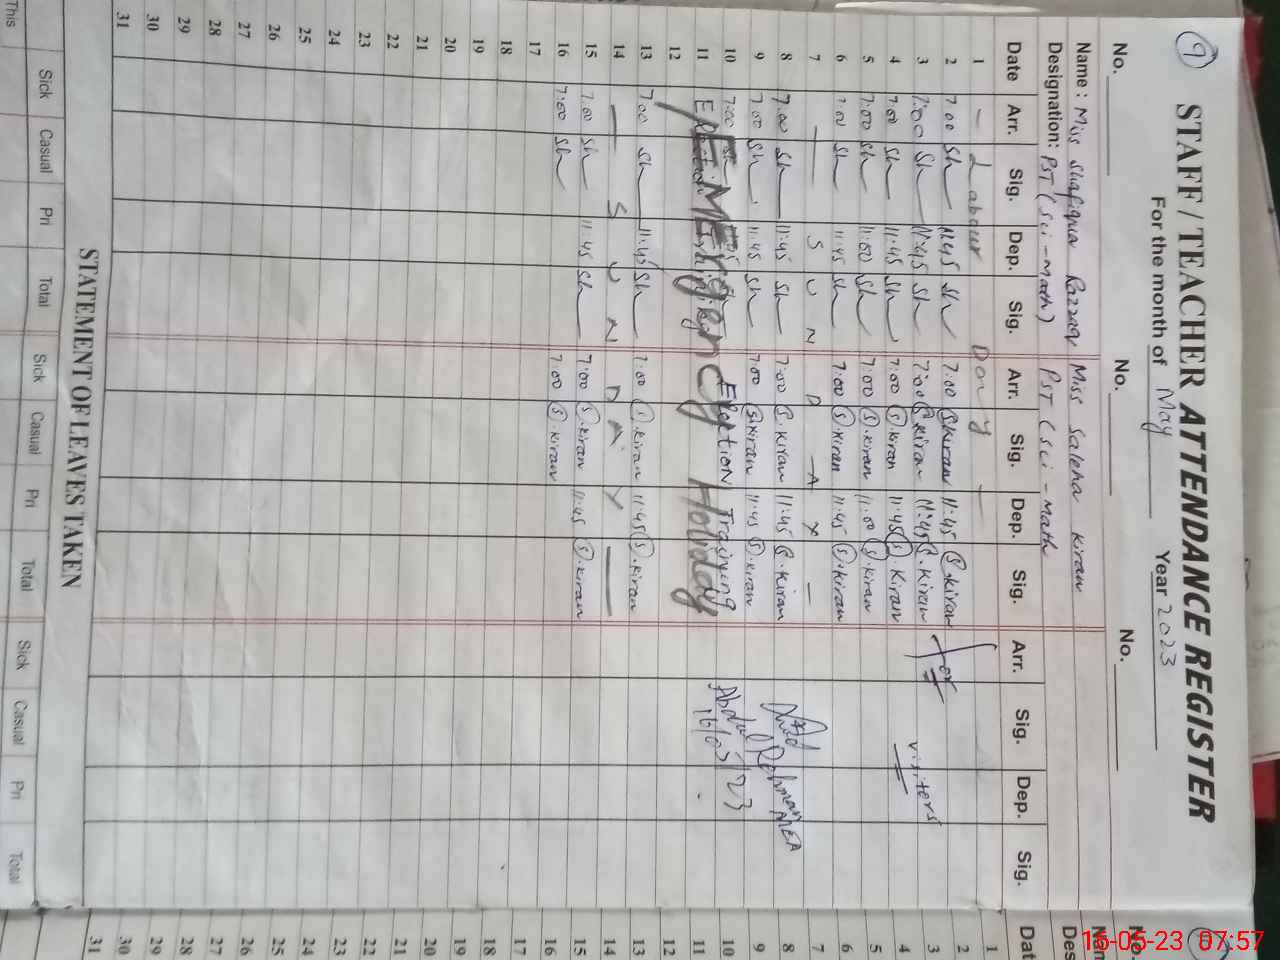 9
STAFF / TEACHER ATTENDANCE REGISTER
For the month of May Year 2023
No. No. No.
Name : Miss Shafiqua Razzaq Miss Saleha Kiran
Designation: PST (Sci-math) PST (Sci-math
Date Arr. Sig. Dep. Sig. Arr. Sig. Dep. Sig. Arr. Sig. Dep. Sig.
1 — Labour Day —
2 7:00 Sh 11:45 Sh 7:00 S.kiran 11:45 S.kiran for
3 7:00 Sh 11:45 Sh 7:00 S.kiran 11:45 S.kiran visitors
4 7:00 Sh 11:45 Sh 7:00 S.kiran 11:45 S.kiran
5 7:00 Sh 11:00 Sh 7:00 S.kiran 11:00 S.kiran
6 7:00 Sh 11:45 Sh 7:00 S.kiran 11:45 S.kiran
7 — S U N D A Y —
8 7:00 Sh 11:45 Sh 7:00 S.kiran 11:45 S.kiran
9 7:00 Sh 11:45 Sh 7:00 S.kiran 11:45 S.kiran MEA
10 7:00 Election Training Abdul Rehman
11 EMERgency Holiday 16/05/23
12
13 7:00 Sh 11:45 Sh 7:00 S.kiran 11:45 S.kiran
14 — S U N D A Y —
15 7:00 Sh 11:45 Sh 7:00 S.kiran 11:45 S.kiran
16 7:00 Sh 7:00 S.kiran
17
18
19
20
21
22
23
24
25
26
27
28
29
30
31
STATEMENT OF LEAVES TAKEN
Sick Casual Pri Total Sick Casual Pri Total Sick Casual Pri Total
This
No.
Nam
Des
Dat
1
2
3
4
5
6
7
8
9
10
11
12
13
14
15
16
17
18
19
20
21
22
23
24
25
26
27
28
29
30
31
16-05-23 07:57